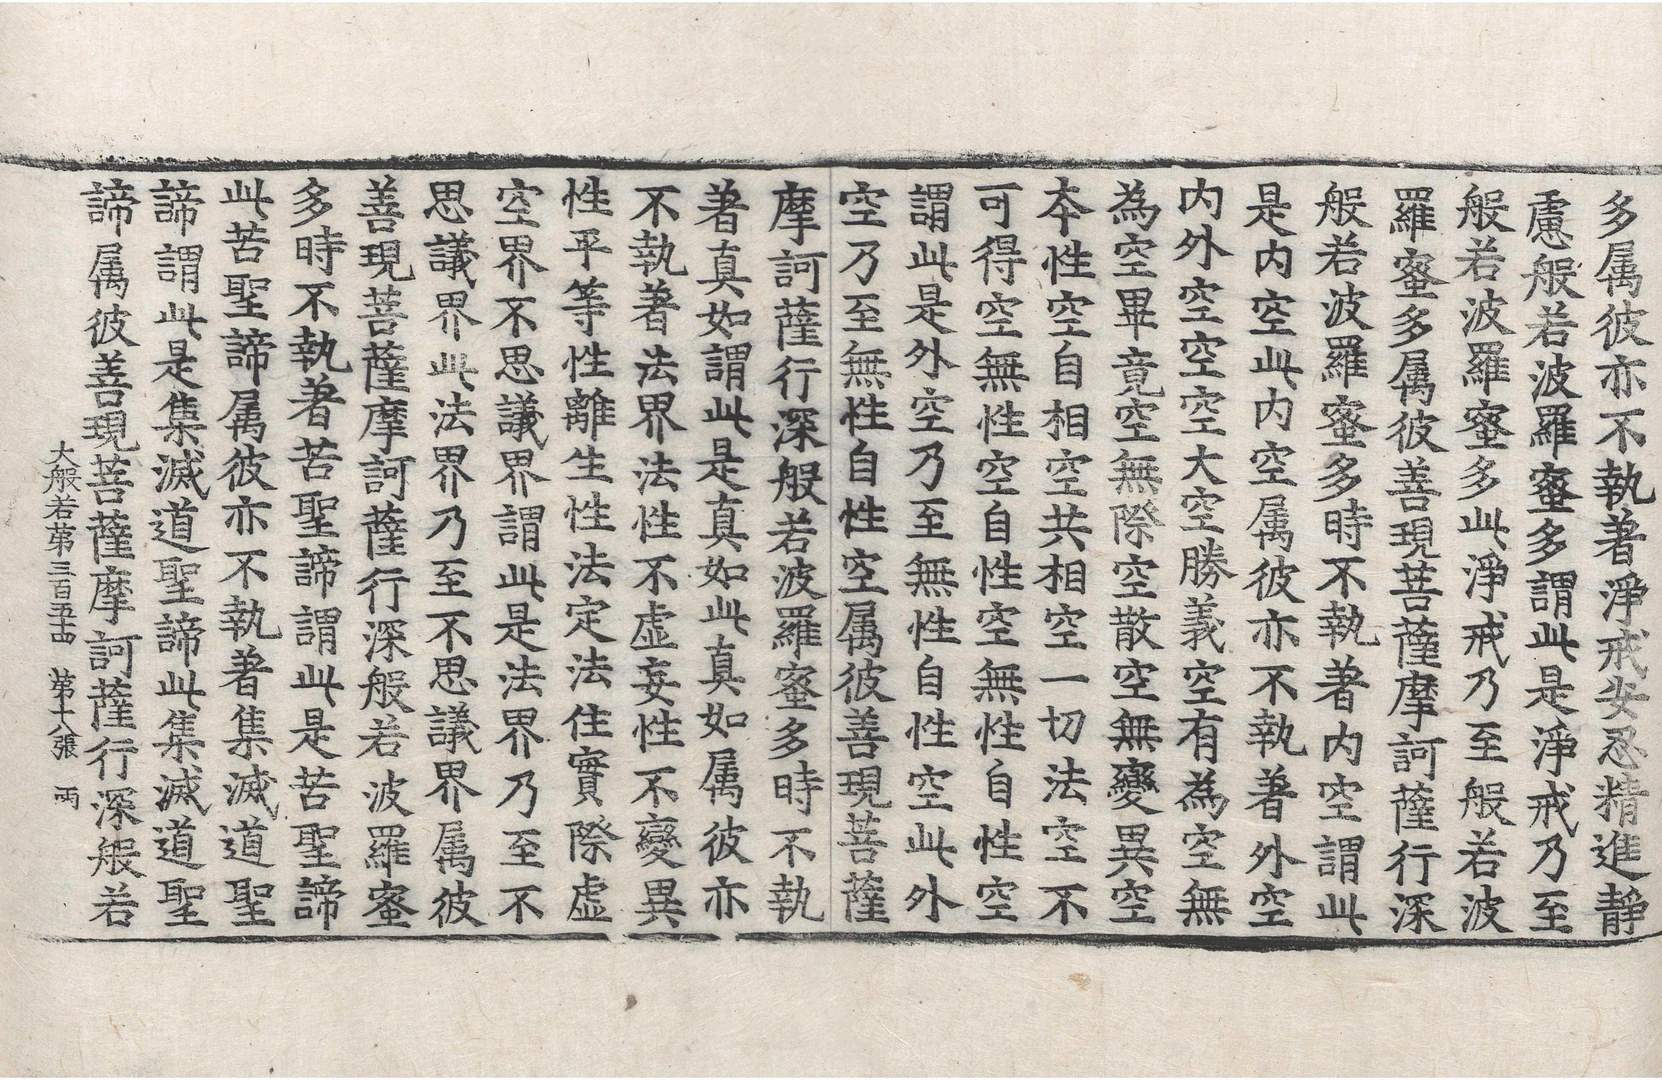 多属彼亦不執著淨戒安忍精進靜
慮般若波羅蜜多謂此是淨戒乃至
般若波羅蜜多此淨戒乃至般若波
羅蜜多属彼善現菩薩摩訶薩行深
般若波羅蜜多時不執著内空謂此
是内空此内空属彼亦不執著外空
内外空空空大空勝義空有為空無
為空畢竟空無際空散空無變異空
本性空自相空共相空一切法空不
可得空無性空自性空無性自性空
謂此是外空乃至無性自性空此外
空乃至無性自性空属彼善現菩薩
摩訶薩行深般若波羅蜜多時不執
著真如謂此是真如此真如属彼亦
不執著法界法性不虛妄性不變異
性平等性離生性法定法住實際虛
空界不思議界謂此是法界乃至不
思議界此法界乃至不思議界属彼
善現菩薩摩訶薩行深般若波羅蜜
多時不執著苦聖諦謂此是苦聖諦
此苦聖諦属彼亦不執著集滅道聖
諦謂此是集滅道聖諦此集滅道聖
諦属彼善現菩薩摩訶薩行深般若
大般若第三百五十四 第十八張 雨